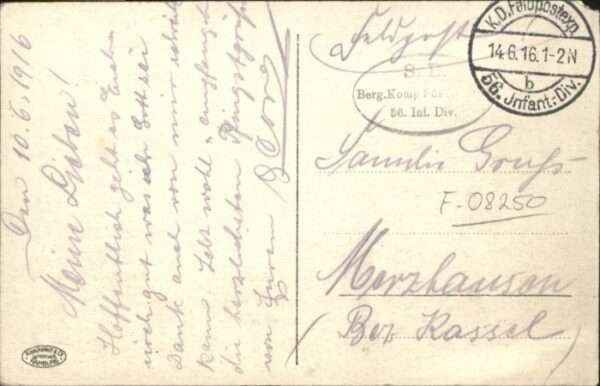 Den 10.6.1916
Meine Lieben!
Hoffentlich geht es Euch
noch gut was ich Gott sei
Dank auch von mir schreiben
kann. Lebt wohl u. empfangt
die herzlichsten Pfingstgrüße
von Eurem
Georg
Feldpost
K.D.Feldpostexp.
14.6.16.1-2N
b
56. Jnfant.-Div.
S. B.
Berg.Komp
56. Inf. Div.
Familie
F-08250
Merzhausen
(Bez Kassel)
HAMBURG